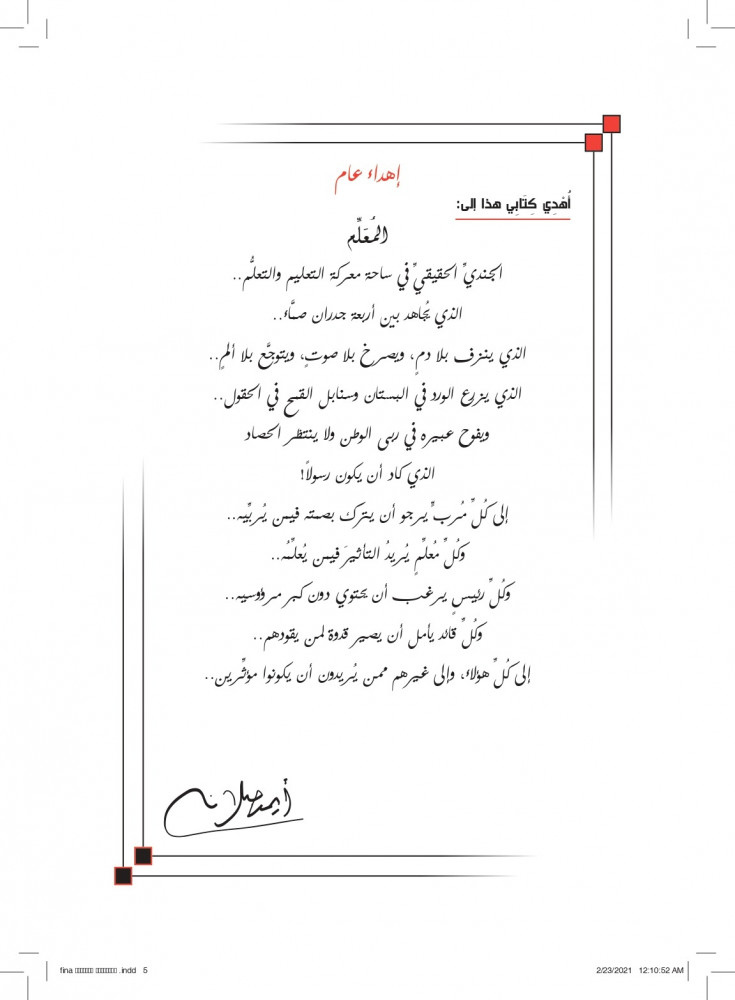 إهداء عام
أُهْدِي كِتَابِي هذا إلى:
المُعَلِّم
الجنديِّ الحقيقيِّ في ساحة معركة التعليم والتعلُّم..
الذي يُجاهد بين أربعة جدران صمَّاء..
الذي ينزف بلا دمٍ، ويصرخ بلا صوتٍ، ويتوجَّع بلا ألمٍ..
الذي يزرع الورد في البستان وسنابل القمح في الحقول..
ويفوح عبيره في ربى الوطن ولا ينتظر الحصاد
الذي كاد أن يكون رسولاً!
إلى كُلِّ مُربٍّ يرجو أن يترك بصمته فيمن يُربِّيه..
وكُلِّ مُعلِّمٍ يُريدُ التأثيرَ فيمن يُعلِّمُه..
وكُلِّ رئيسٍ يرغب أن يحتوي دون كبر مرؤوسيه..
وكُلِّ قائد يأمل أن يصير قدوة لمن يقودهم..
إلى كُلِّ هؤلاء، وإلى غيرهم ممن يُريدون أن يكونوا مؤثِّرين..
fina .indd 5 2/23/2021 12:10:52 AM